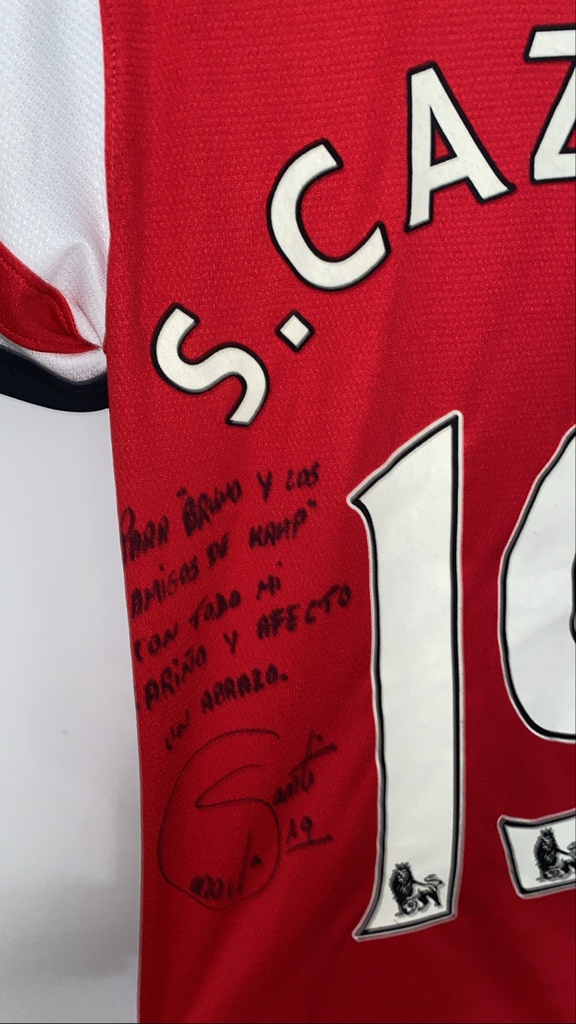 S. CAZ
19
PARA "BRUNO Y LOS
AMIGOS DE KAMP"
CON TODO MI
CARIÑO Y AFECTO
UN ABRAZO.
Santi
19